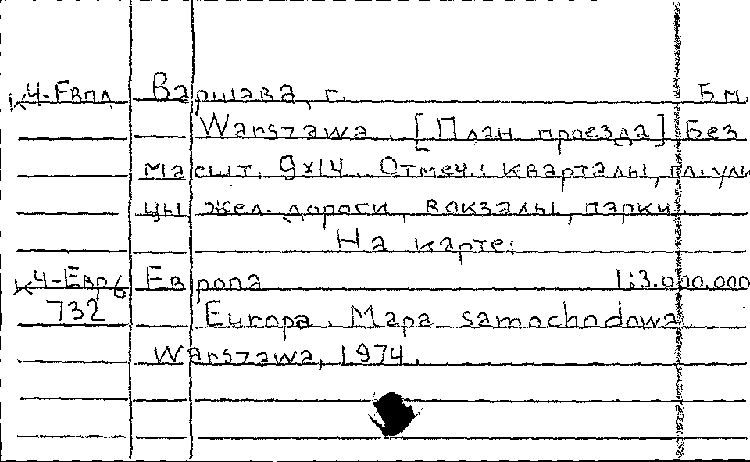 К4-Евпл Варшава, г. Б.м.
Warszawa. [План проезда] Без
масшт. 9х14. Отмеч.: кварталы, гл. ули
цы жел. дороги, вокзалы, парки.
На карте:
К4-Евр6 Европа 1:3.000.000
732 Europa. Mapa samochodowa
Warszawa, 1974.